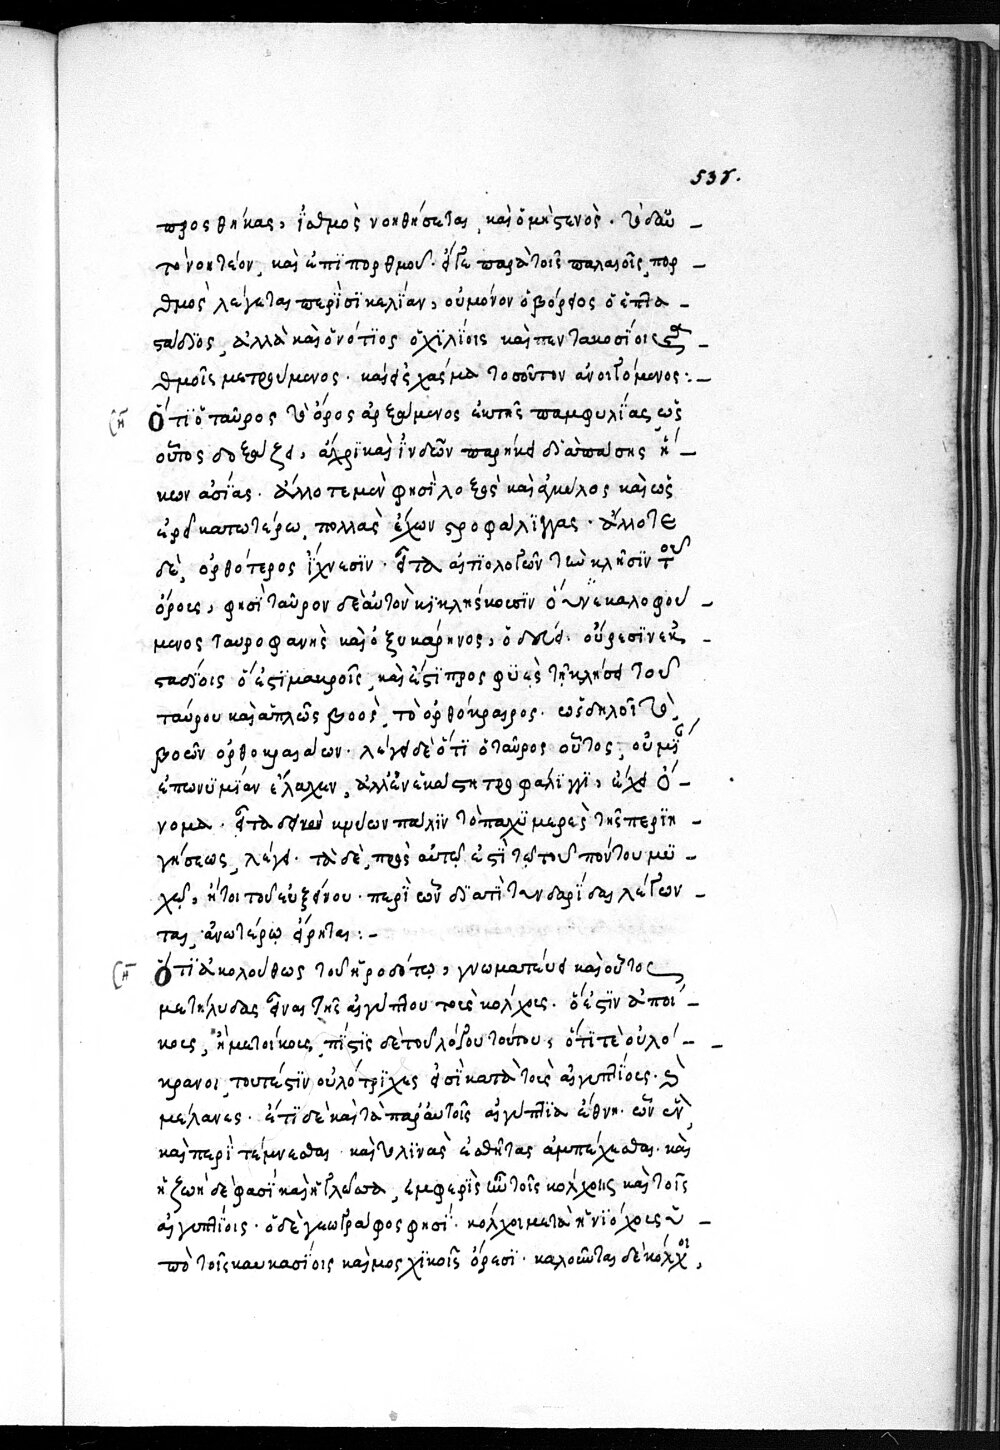 537.
προσθήκας, ἰσθμὸς νοηθήσεται, καὶ ὁ μὴ στενὸς. τὸ δ' αὐ
τὸ νοητέον, καὶ ἐπὶ πορθμοῦ. ὅτε παρὰ τοῖς παλαιοῖς, πορ
θμὸς λέγεται περὶ σικελίαν, οὐ μόνον ὁ βόρειος ὁ ἑπτα
στάδιος, ἀλλὰ καὶ ὁ νότιος ὁ χιλίοις καὶ πεντακοσίοις στα
θμοῖς μετρούμενος. καὶ εἰς χάσμα τοσοῦτον ἀνοιγόμενος:
Ὅτι ὁ ταῦρος τὸ ὄρος ἀρξάμενος ἐκ τῆς παμφυλίας, ὡς
οὗτος δοξάζει, ἄχρι καὶ ἰνδῶν παρήκει διὰ πάσης ἥ
κων ἀσίας. ἄλλοτε μὲν φησὶ λοξὸς καὶ ἀγκύλος καὶ ὡς
ἐρεῖ κατωτέρω, πολλὰς ἔχων στροφάλιγγας. ἄλλοτε
δὲ, ὀρθότερος ἴχνεσιν. εἶτα αἰτιολογῶν τὴν κλῆσιν τοῦ
ὄρους, φησὶ ταῦρον δὲ αὐτὸν κικλήσκουσιν οὕνεκα
μενος ταυροφανὴς καὶ ὀξυκάρηνος, ὁδεύει. οὔρεσιν ἐκ
ταδίοις ὅ ἐστι μακροῖς, καὶ ἔστι προσφυὲς τῇ κλήσει τοῦ
ταύρου καὶ ἁπλῶς βοὸς, τὸ ὀρθόκραιρος. ὡς δηλοῖ τὸ,
βοῶν ὀρθοκραιράων. λέγει δὲ ὅτι ὁ ταῦρος οὗτος, οὐ μίαν
ἐπωνυμίαν ἔλαχεν, ἀλλ' ἐν ἑκάστῃ στροφάλιγγι, ἔχει ὄ
νομα. εἶτα πάλιν τὸ παχυμερὲς τῆς περιη
γήσεως, λέγει. τὰ δὲ, πρὸς αὐτῷ ἐστὶ τῷ τοῦ πόντου μυ
χῷ, ἤτοι τοῦ εὐξείνου. περὶ ὧν διατὶ τυνδαρίδαι λέγον
ται, ἀνωτέρω εἴρηται:
Ὅτι ἀκολούθως τοῦ ἡροδότῳ, γνωματεύει καὶ οὗτος
μετήλυδας εἶναι τῆς αἰγύπτου τοὺς κόλχους. ὅ ἐστιν ἀποί
κους, ἢ μετοίκους, πίστις δὲ τοῦ λόγου τούτου, ὅτι τὲ οὐλό
κρανοι, τουτέστιν οὐλότριχες εἰσὶ κατὰ τοὺς αἰγυπτίους. καὶ
μέλανες. ἔτι δὲ καὶ τὰ παρ' αὐτοῖς αἰγύπτια ἔθνη. ὧν ἓν,
καὶ περιτέμνεσθαι. καὶ τὸ λινᾶς ἐσθῆτας ἀμπέχεσθαι. καὶ
ἡ ζωὴ δὲ φασὶ καὶ ἡ γλῶσσα, ἐμφερὴς τοῖς κόλχοις καὶ τοῖς
αἰγυπτίοις. ὁ δὲ γεωγράφος φησὶ. κόλχοι μετὰ ἡνιόχους ὑ
πὸ τοῖς καυκασίοις καὶ μοσχικοῖς ὄρεσι. καλοῦνται δὲ κόλχοι,